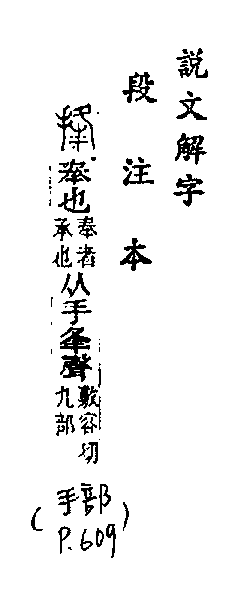 說文解字
段注本
捀 奉也 奉者承也 从手夆聲 敷容切九部
(手部 P.609)